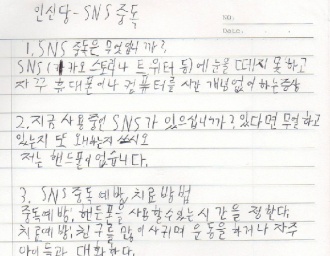 인신당 - SNS 중독
No.
Date.
1. SNS 중독은 무엇입니까?
SNS(카카오스토리나 트위터 등)에 눈을 떼지 못하고
자꾸 휴대폰이나 컴퓨터를 시간 개념 없이 하는 증상
2. 지금 사용중인 SNS가 있으십니까? 있다면 무얼 하고
있는지 또 왜 하는지 쓰시오
저는 핸드폰이 없습니다.
3. SNS 중독 예방, 치료 방법
중독예방, 핸드폰을 사용할 수 있는 시간을 정한다.
치료예방, 친구를 많이 사귀며 운동을 하거나 자주
아이들과 대화한다.